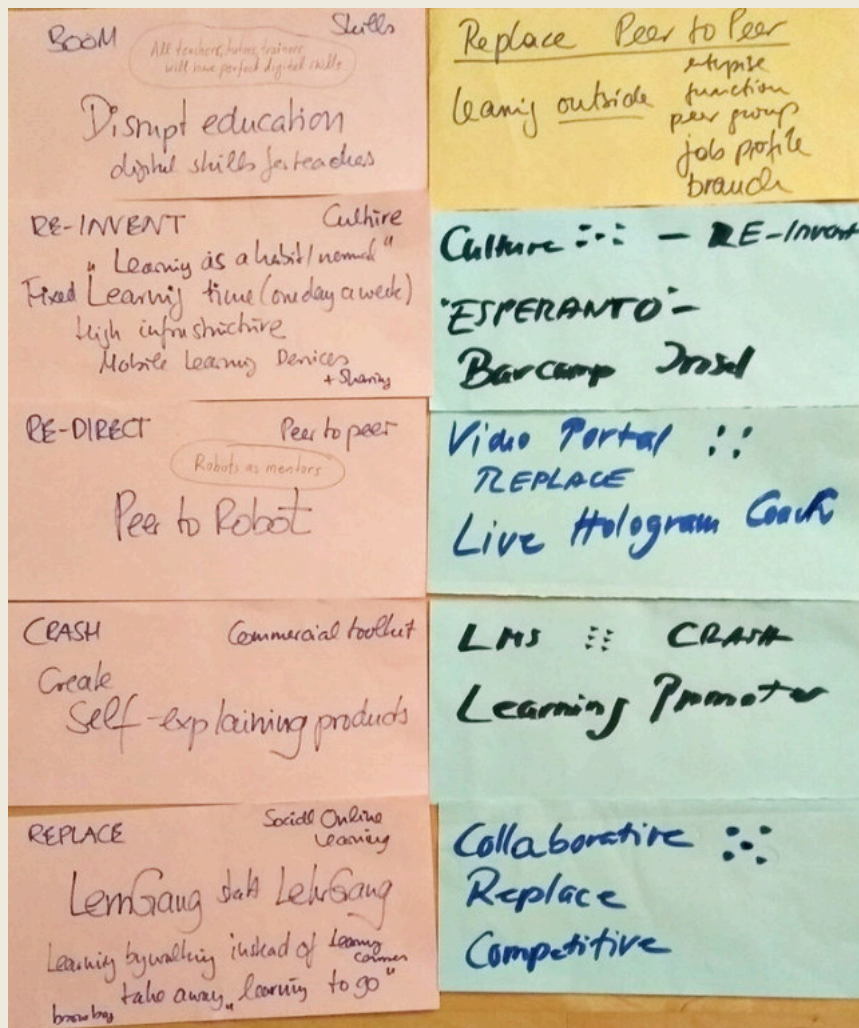 BOOM Skills
All teachers, tutors, trainers
will have perfect digital skills
Disrupt education
digital skills for teachers
RE-INVENT Culture
"Learning as a habit/normal"
Fixed Learning time (one day a week)
High infrastructure
Mobile Learning Devices
+ Sharing
RE-DIRECT Peer to peer
Robots as mentors
Peer to Robot
CRASH Commercial toolkit
Create
Self-explaining products
REPLACE Social Online
Learning
LernGang statt LehrGang
Learning by walking instead of learning
take away "learning to go"
Replace Peer to Peer
learning outside
function
peer group
job profile
branch
Culture - RE-Invent
"ESPERANTO"-
Barcamp
Video Portal
REPLACE
Live Hologram Coach
LMS CRASH
Learning Promoter
Collaborative
Replace
Competitive